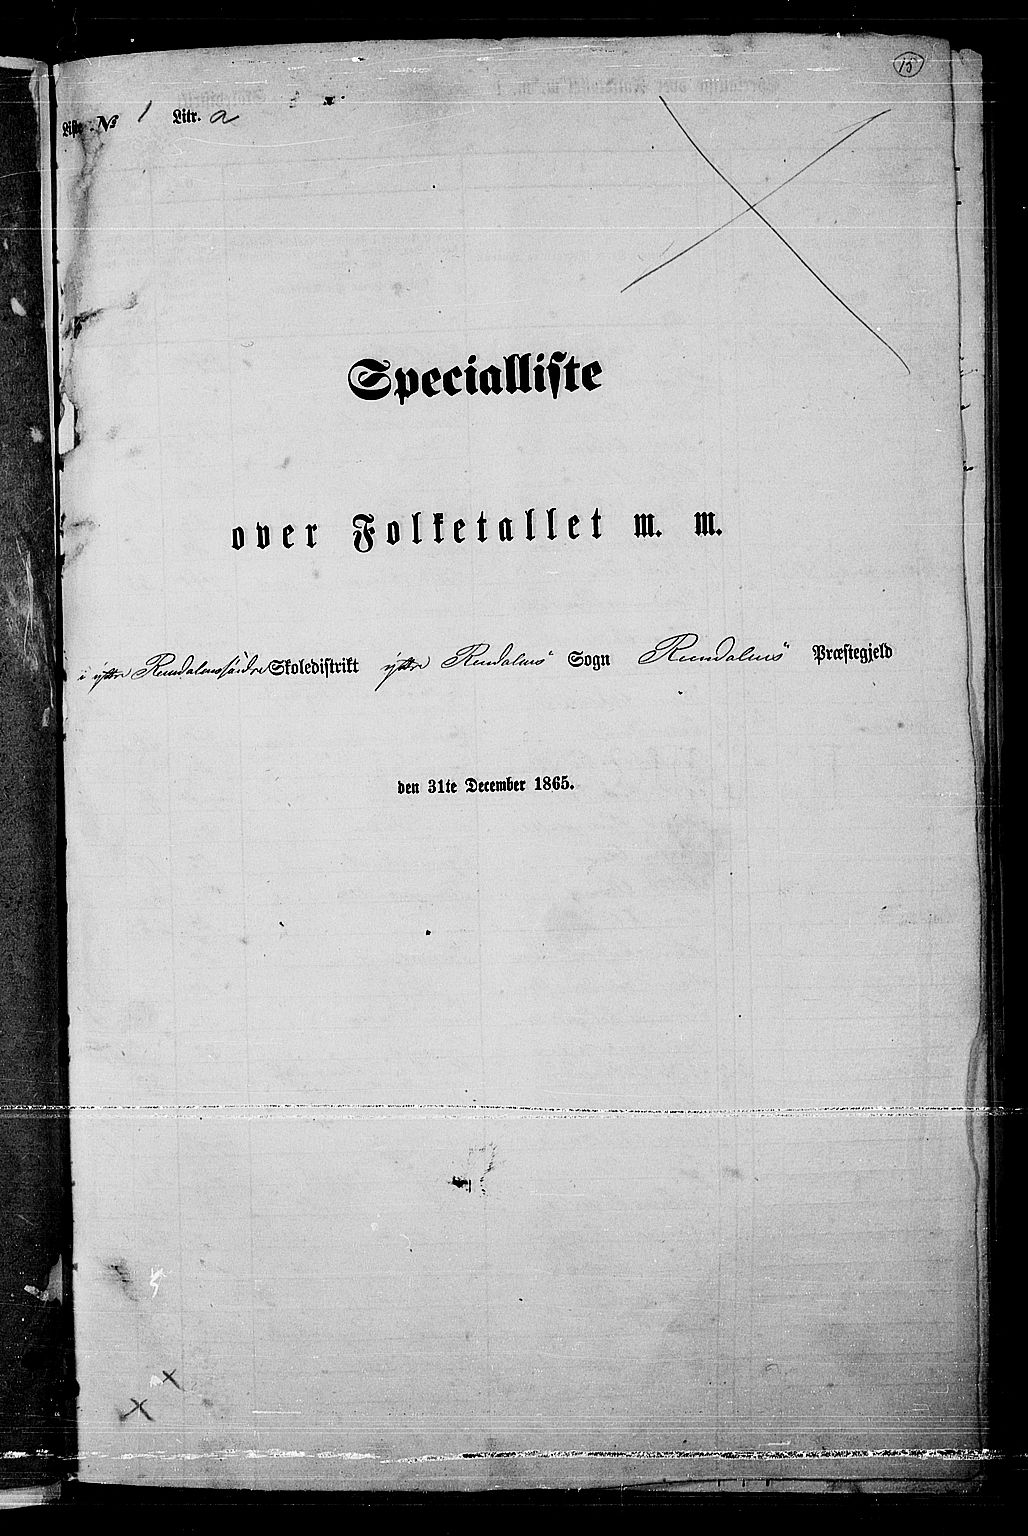 15
Liste No 1 Litr. a
Specialliste
over Folketallet m. m.
i ÿttre Rendalens søndre Skoledistrikt ÿttre Rendalens Sogn Rendalens Præstegjeld
den 31te December 1865.